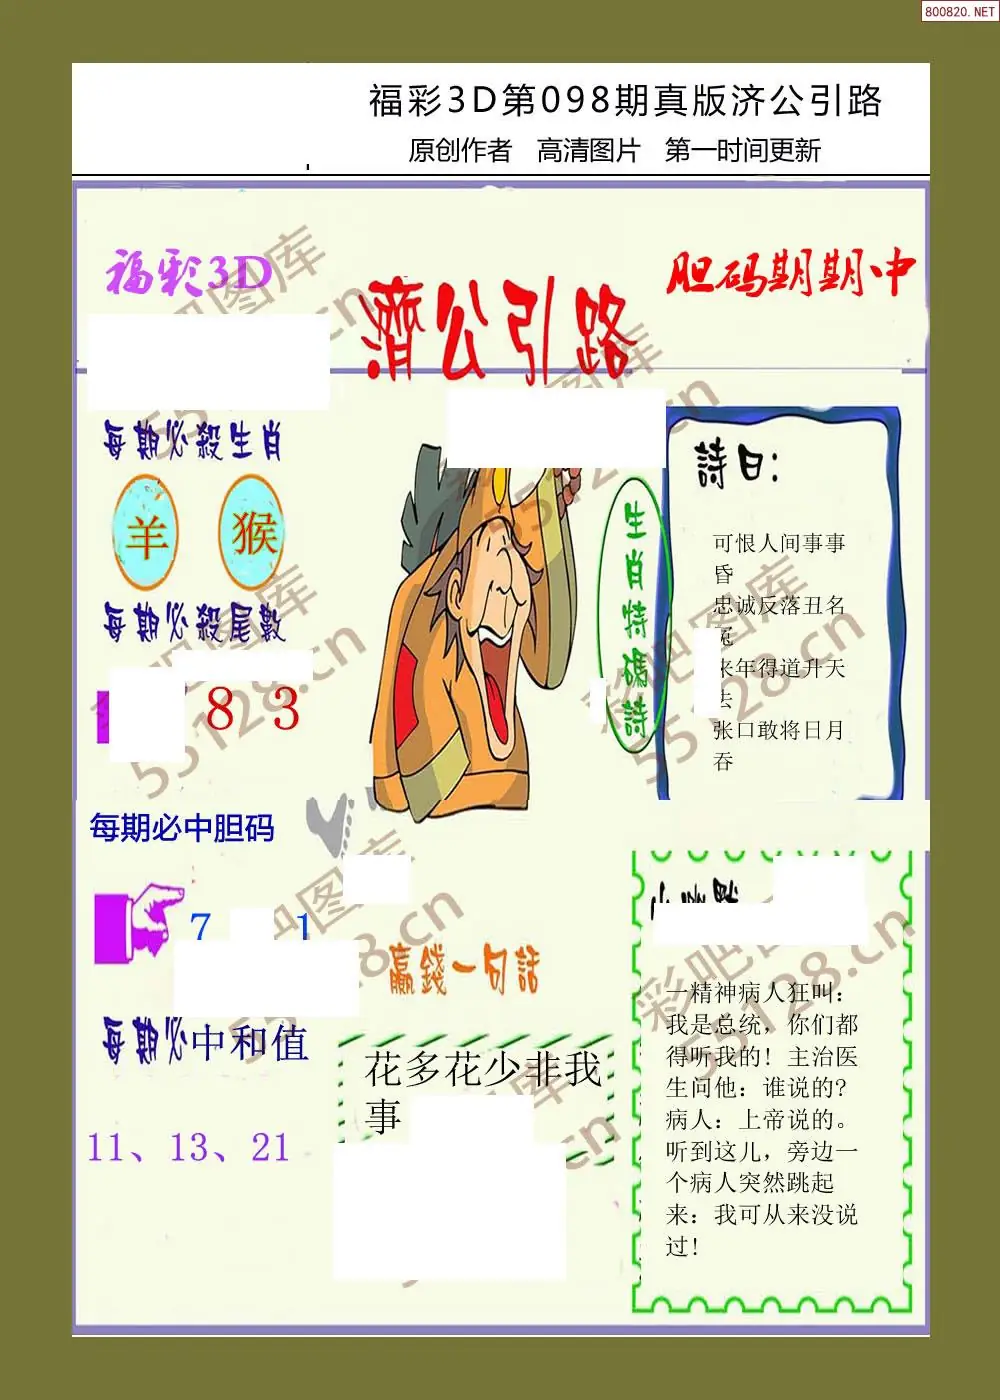 800820.NET
福彩3D第098期真版济公引路
原创作者 高清图片 第一时间更新
福彩3D
濟公引路
胆码期期中
每期必殺生肖
羊 猴
每期必殺尾數
8 3
生肖特碼詩
詩曰:
可恨人间事事
昏
忠诚反落丑名
冤
来年得道升天
去
张口敢将日月
吞
每期必中胆码
7 1
贏錢一句話
每期必中和值
11、13、21
花多花少非我
事
一精神病人狂叫:
我是总统，你们都
得听我的! 主治医
生问他: 谁说的?
病人: 上帝说的。
听到这儿，旁边一
个病人突然跳起
来: 我可从来没说
过!
彩吧图库
55128.cn